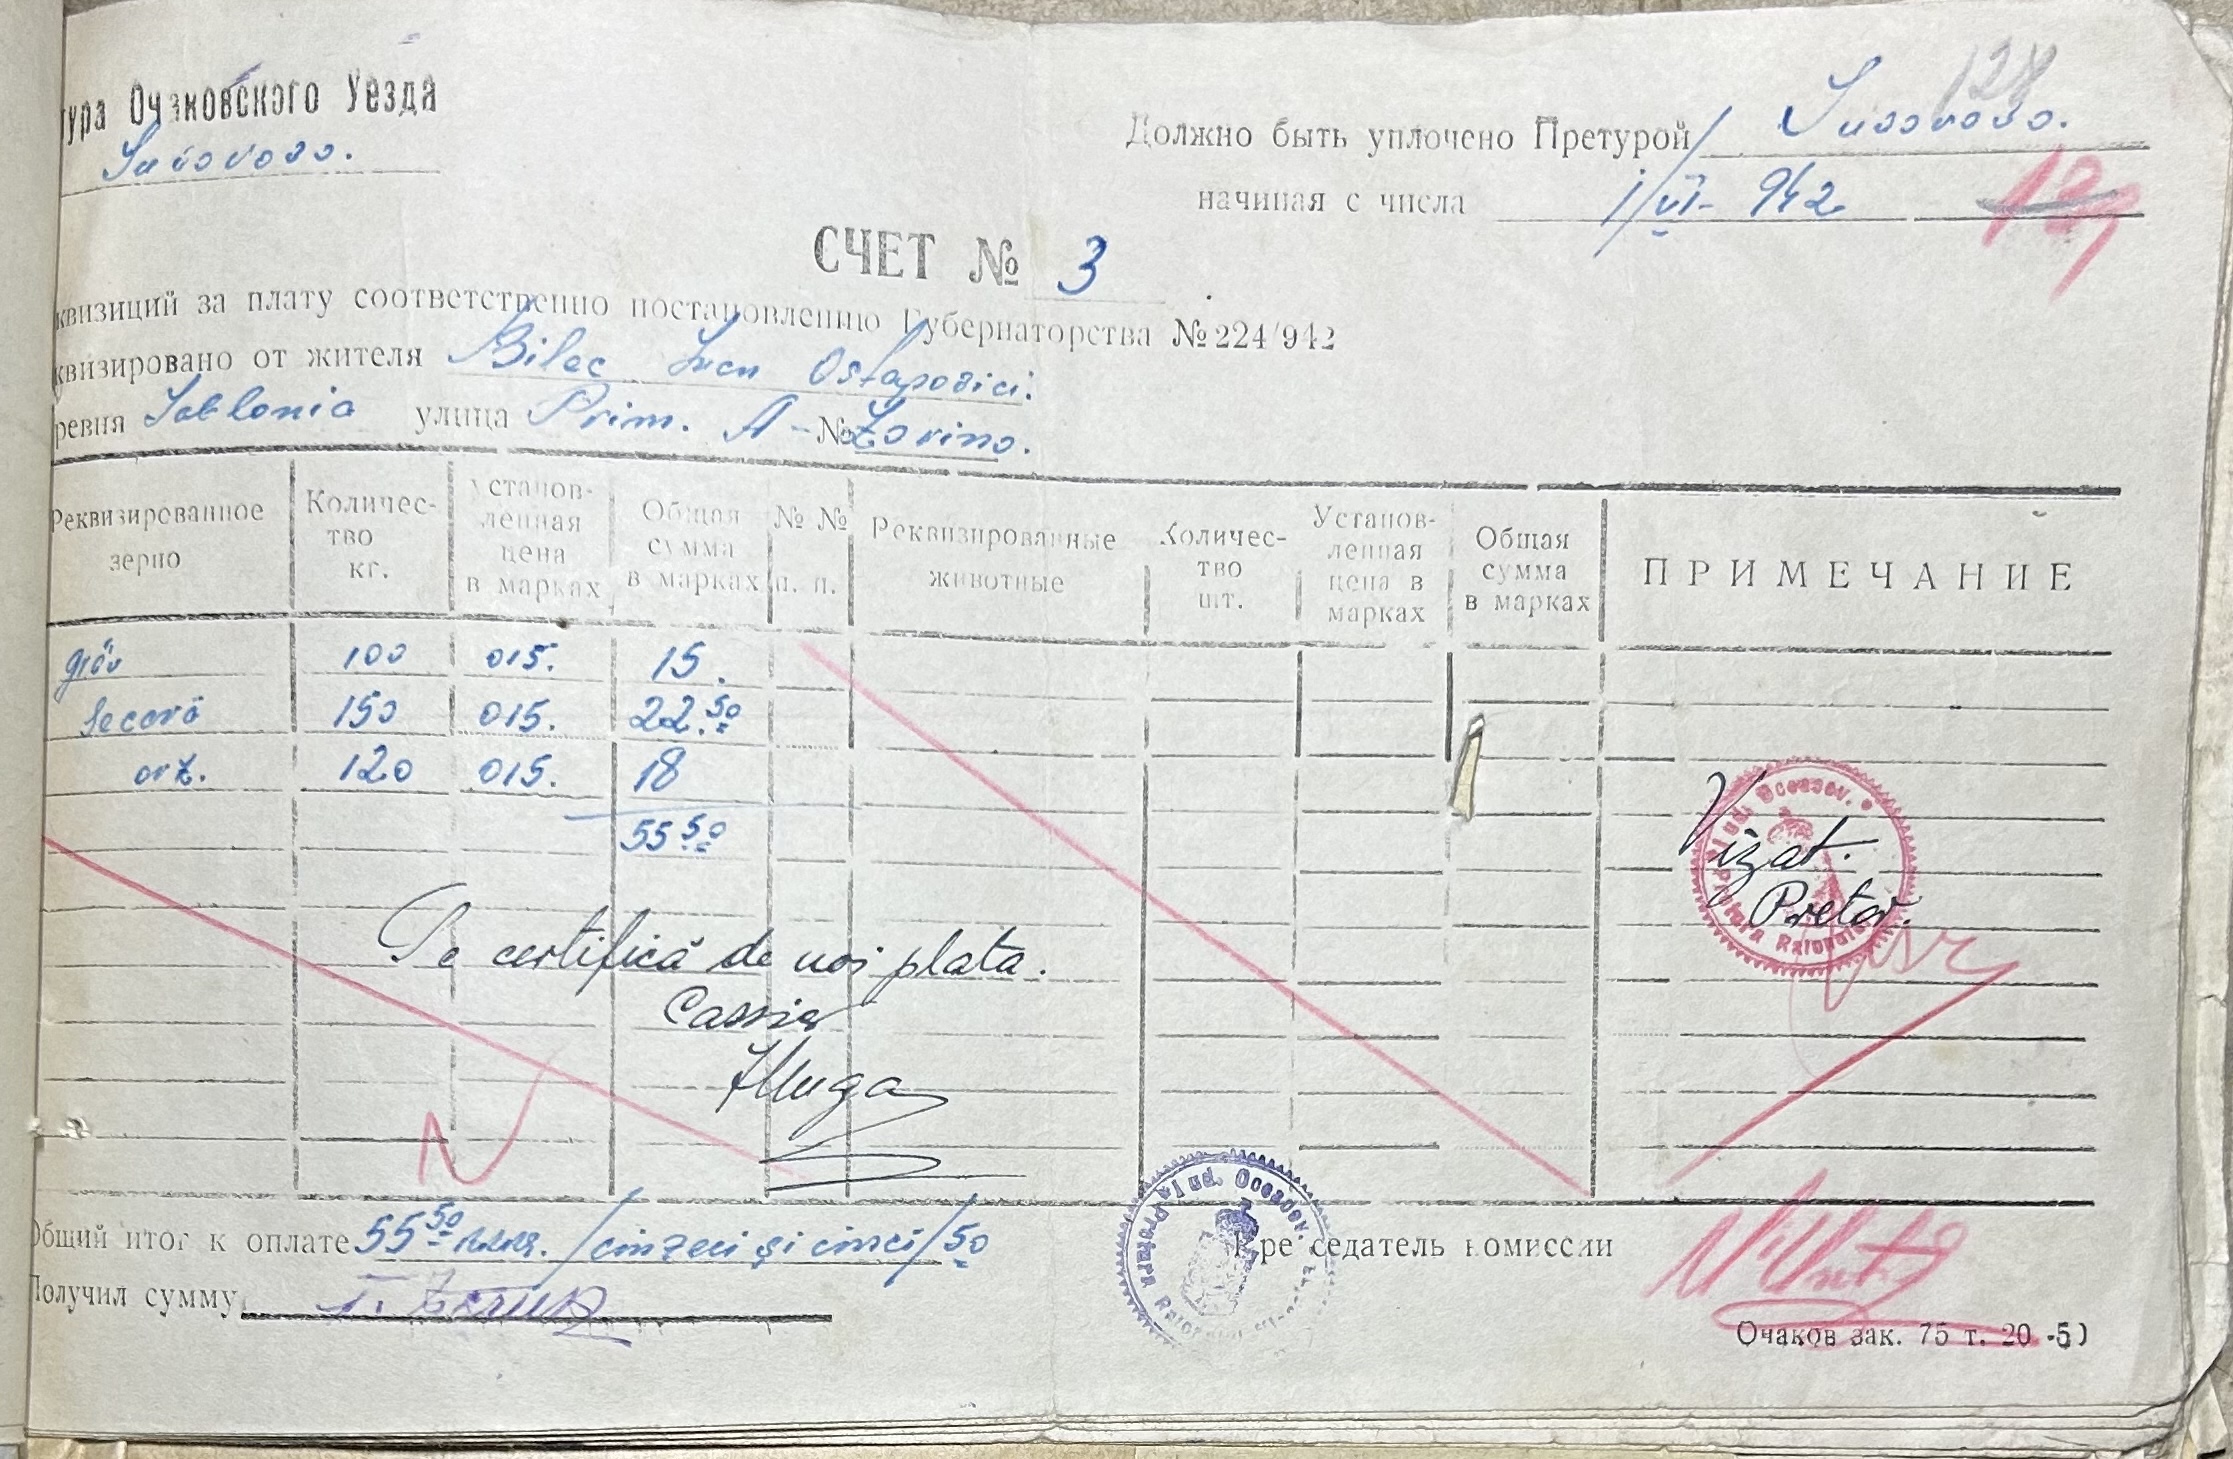 тура Очаковского Уезда
Suvorovo.
128
Должно быть уплочено Претурой Suvorovo.
начиная с числа 1/VI- 942
СЧЕТ № 3
квизиций за плату соответственно постановлению Губернаторства № 224/942
квизировано от жителя Bilec Ostapovici.
ревня Sablonia улица Prim. A- № Zorino.
Реквизированное зерно Количес-тво кг. Установ-ленная цена в марках Общая сумма в марках № № п. п. Реквизированные животные Количес-тво шт. Установ-ленная цена в марках Общая сумма в марках ПРИМЕЧАНИЕ
grâu 100 015. 15.
secară 150 015. 22.50
orz. 120 015. 18
55 50
Vizat.
Pretor.
Se certifică de noi plata.
Cassier
Общий итог к оплате 55 50 /cinzeci și cinci/50
Председатель комиссии
Получил сумму
Jud. Oceacov.
Pretura Raionului
Очаков зак. 75 т. 20 -5)